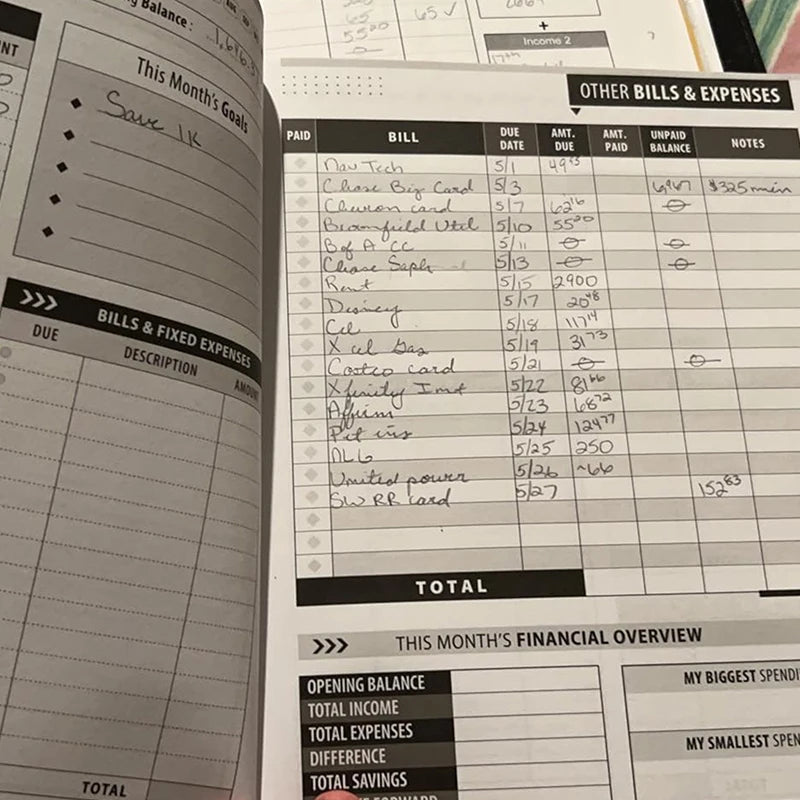 ng Balance :
This Month's Goals
Save 1K
BILLS & FIXED EXPENSES
DUE DESCRIPTION AMOUN
TOTAL
65 ✓
Income 2
OTHER BILLS & EXPENSES
PAID BILL DUE DATE AMT. DUE AMT. PAID UNPAID BALANCE NOTES
Nav Tech 5/1
Chase Biz Card 5/3 $325 min
Chevron card 5/7 62 16
Broomfield Util 5/10 55 20
B of A CC 5/11
Chase Saph 5/13
Rent 5/15 2900
Disney 5/17 20 48
Cel 5/18 117 14
Xcel Gas 5/19 31 73
Costco card 5/21
Xfinity Int 5/22 81 66
Affirm 5/23 68 72
Pet ins 5/24 124 77
5/25 250
United power 5/26 ~66
SW RR Card 5/27 152 83
TOTAL
>>> THIS MONTH'S FINANCIAL OVERVIEW
OPENING BALANCE
TOTAL INCOME
TOTAL EXPENSES
DIFFERENCE
TOTAL SAVINGS
MY BIGGEST SPENDI
MY SMALLEST SPEN